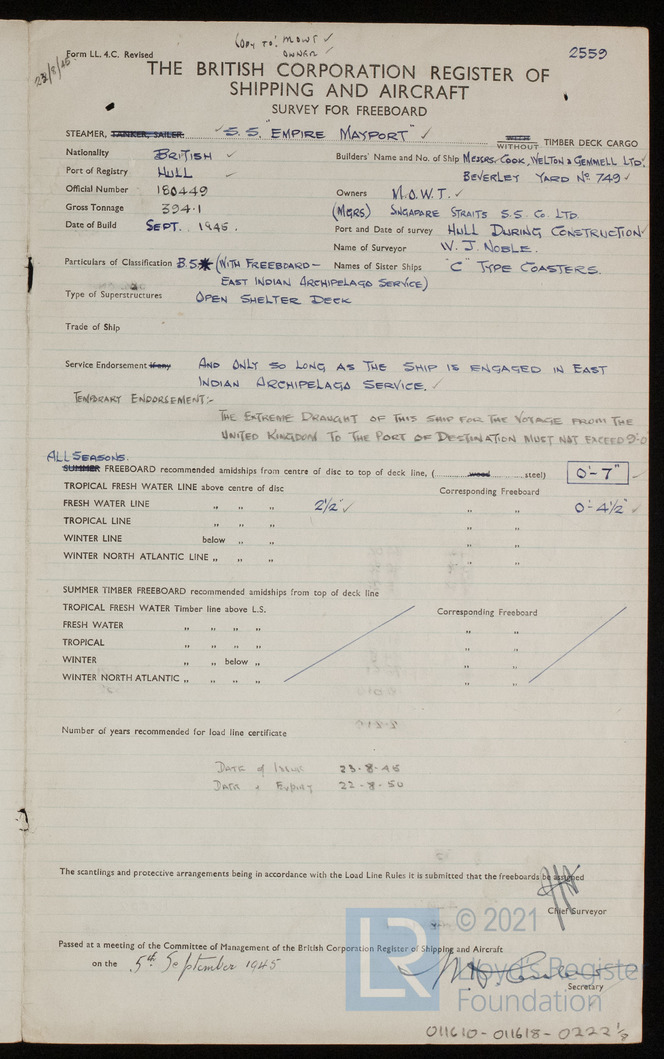 Copy to: MOWT ✓
OWNER ✓
2559
Form LL. 4.C. Revised
23/8/45
THE BRITISH CORPORATION REGISTER OF
SHIPPING AND AIRCRAFT
SURVEY FOR FREEBOARD
STEAMER, TANKER, SAILER. ✓ S.S. "EMPIRE MAYPORT" ✓ WITH WITHOUT TIMBER DECK CARGO
Nationality BRITISH ✓
Builders' Name and No. of Ship MESSRS. COOK, WELTON & GEMMELL LTD.
Port of Registry HULL ✓
BEVERLEY YARD No. 749 ✓
Official Number 180449
Owners M.O.W.T. ✓
Gross Tonnage 394.1
(MGRS) SINGAPORE STRAITS S.S. CO. LTD.
Date of Build SEPT. 1945.
Port and Date of survey HULL DURING CONSTRUCTION ✓
Name of Surveyor W. J. NOBLE.
Particulars of Classification B.S.* (WITH FREEBOARD -
Names of Sister Ships "C" TYPE COASTERS.
EAST INDIAN ARCHIPELAGO SERVICE)
Type of Superstructures OPEN SHELTER DECK
Trade of Ship
Service Endorsement if any AND ONLY SO LONG AS THE SHIP IS ENGAGED IN EAST
INDIAN ARCHIPELAGO SERVICE. ✓
TEMPORARY ENDORSEMENT:-
THE EXTREME DRAUGHT OF THIS SHIP FOR THE VOYAGE FROM THE
UNITED KINGDOM TO THE PORT OF DESTINATION MUST NOT EXCEED 9'-0
ALL SEASONS.
SUMMER FREEBOARD recommended amidships from centre of disc to top of deck line, (............wood............steel) 0'-7" ✓
TROPICAL FRESH WATER LINE above centre of disc Corresponding Freeboard
FRESH WATER LINE „ „ „ 2½" ✓ „ „ 0'-4½" ✓
TROPICAL LINE „ „ „ „ „
WINTER LINE below „ „ „ „
WINTER NORTH ATLANTIC LINE „ „ „ „ „
SUMMER TIMBER FREEBOARD recommended amidships from top of deck line
TROPICAL FRESH WATER Timber line above L.S. Corresponding Freeboard
FRESH WATER „ „ „ „ „ „
TROPICAL „ „ „ „ „ „
WINTER „ „ below „ „ „
WINTER NORTH ATLANTIC „ „ „ „ „ „
Number of years recommended for load line certificate
DATE of ISSUE 23-8-45
DATE " EXPIRY 22-8-50
The scantlings and protective arrangements being in accordance with the Load Line Rules it is submitted that the freeboards be assigned
Chief Surveyor
LR © 2021
Lloyd's Register
Foundation
Passed at a meeting of the Committee of Management of the British Corporation Register of Shipping and Aircraft
on the 5th September 1945
Secretary
011610-011618-0222 1/2